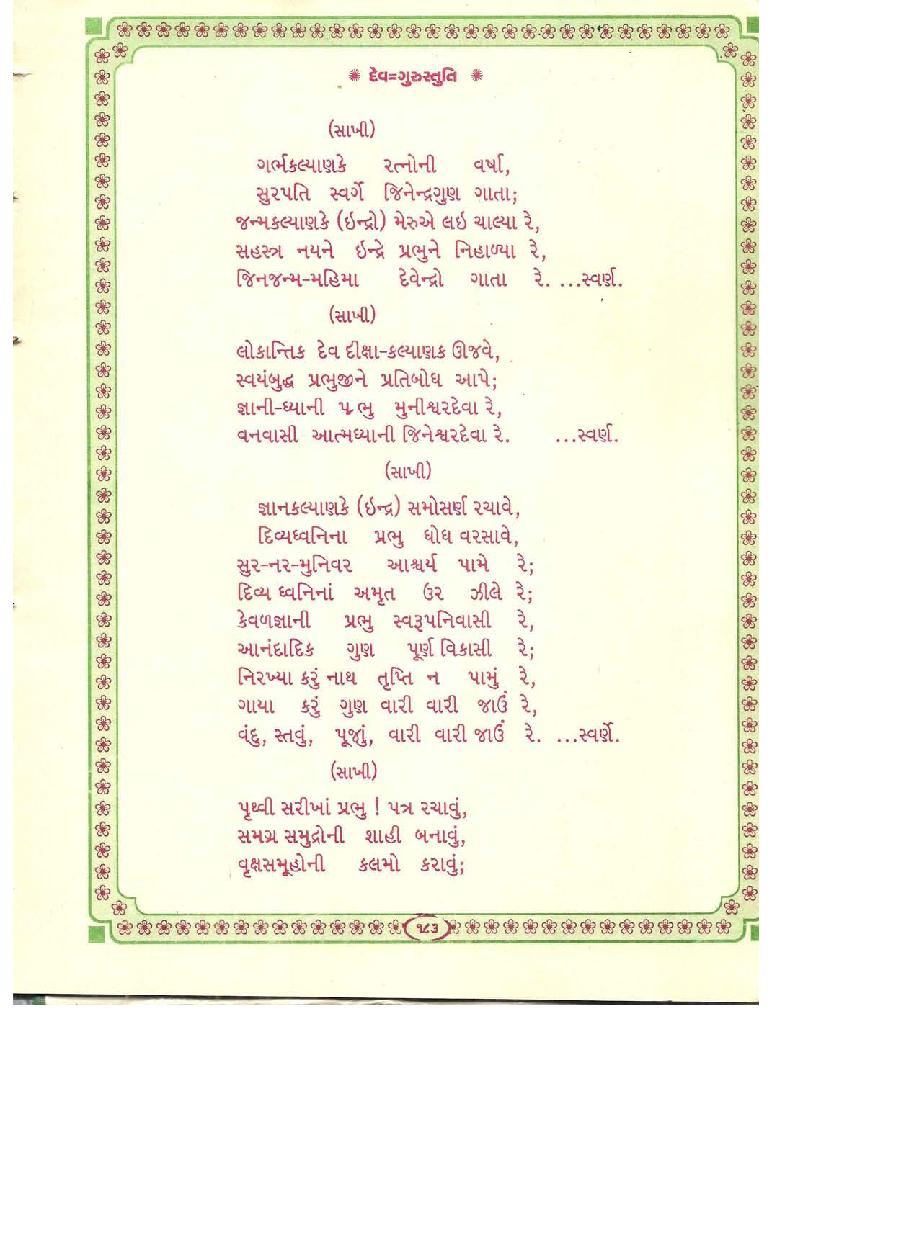 ✺ દેવ=ગુરુસ્તુતિ ✺
(સાખી)
ગર્ભકલ્યાણકે રત્નોની વર્ષા,
સુરપતિ સ્વર્ગે જિનેન્દ્રગુણ ગાતા;
જન્મકલ્યાણકે (ઇન્દ્રો) મેરુએ લઇ ચાલ્યા રે,
સહસ્ત્ર નયને ઇન્દ્રે પ્રભુને નિહાળ્યા રે,
જિનજન્મ-મહિમા દેવેન્દ્રો ગાતા રે. ...સ્વર્ણ.
(સાખી)
લોકાન્તિક દેવ દીક્ષા-કલ્યાણક ઊજવે,
સ્વયંબુદ્ધ પ્રભુજીને પ્રતિબોધ આપે;
જ્ઞાની-ધ્યાની પ્રભુ મુનીશ્વરદેવા રે,
વનવાસી આત્મધ્યાની જિનેશ્વરદેવા રે. ...સ્વર્ણ.
(સાખી)
જ્ઞાનકલ્યાણકે (ઇન્દ્ર) સમોસર્ણ રચાવે,
દિવ્યધ્વનિના પ્રભુ ધોધ વરસાવે,
સુર-નર-મુનિવર આશ્ચર્ય પામે રે;
દિવ્ય ધ્વનિનાં અમૃત ઉર ઝીલે રે;
કેવળજ્ઞાની પ્રભુ સ્વરૂપનિવાસી રે,
આનંદાદિક ગુણ પૂર્ણ વિકાસી રે;
નિરખ્યા કરું નાથ તૃપ્તિ ન પામું રે,
ગાયા કરું ગુણ વારી વારી જાઉં રે,
વંદુ, સ્તવું, પૂજાું, વારી વારી જાઉં રે. ...સ્વર્ણે.
(સાખી)
પૃથ્વી સરીખાં પ્રભુ ! પત્ર રચાવું,
સમગ્ર સમુદ્રોની શાહી બનાવું,
વૃક્ષસમૂહોની કલમો કરાવું;
૧૮૩